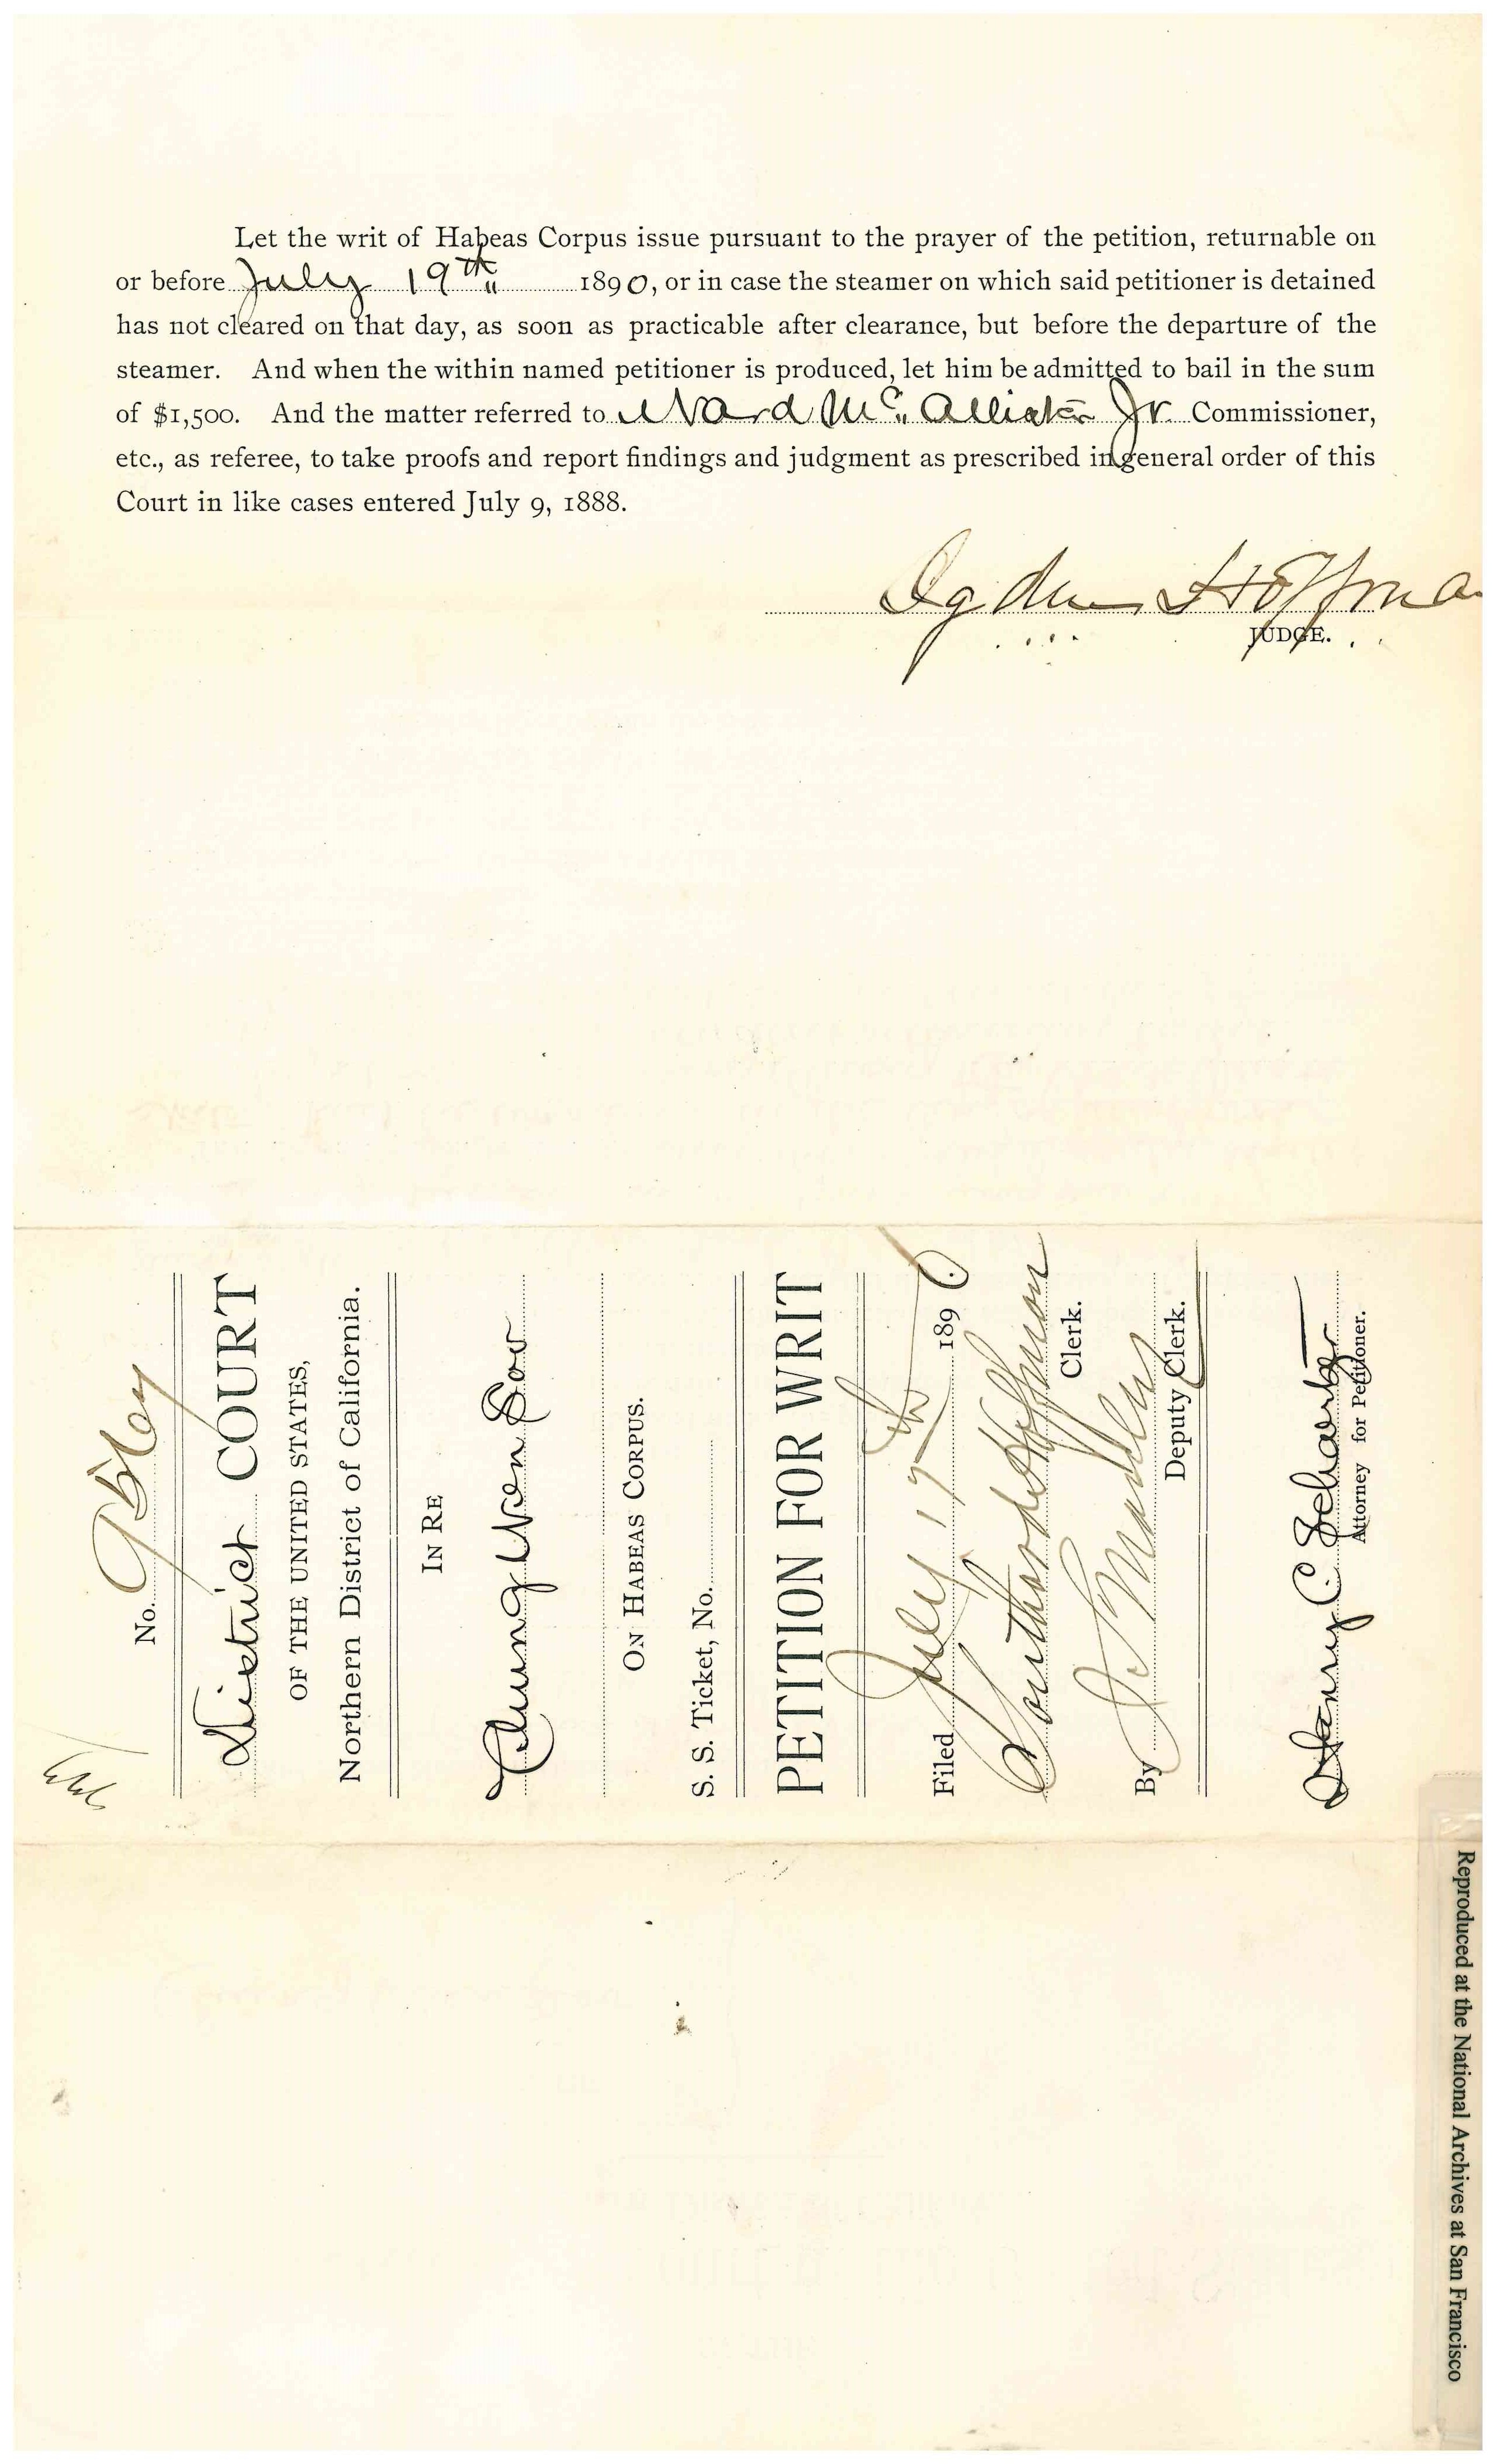 Let the writ of Habeas Corpus issue pursuant to the prayer of the petition, returnable on
or before July 19th 1890, or in case the steamer on which said petitioner is detained
has not cleared on that day, as soon as practicable after clearance, but before the departure of the
steamer. And when the within named petitioner is produced, let him be admitted to bail in the sum
of $1,500. And the matter referred to Ward McAllister Jr. Commissioner,
etc., as referee, to take proofs and report findings and judgment as prescribed in general order of this
Court in like cases entered July 9, 1888.
Ogden Hoffma
JUDGE.
No.
District COURT
OF THE UNITED STATES,
Northern District of California.
IN RE
ON HABEAS CORPUS.
S. S. Ticket, No.
PETITION FOR WRIT
Filed July 17th 1890
Southard Hoffman
Clerk.
By
Deputy Clerk.
Henry C. Schaertzer
Attorney for Petitioner.
Reproduced at the National Archives at San Francisco